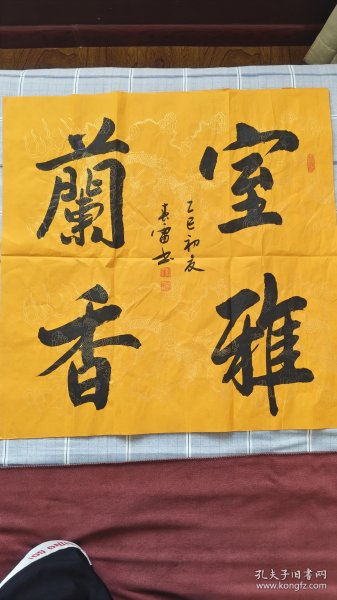 室雅
蘭香
乙巳初夏
春雷書
孔夫子旧书网